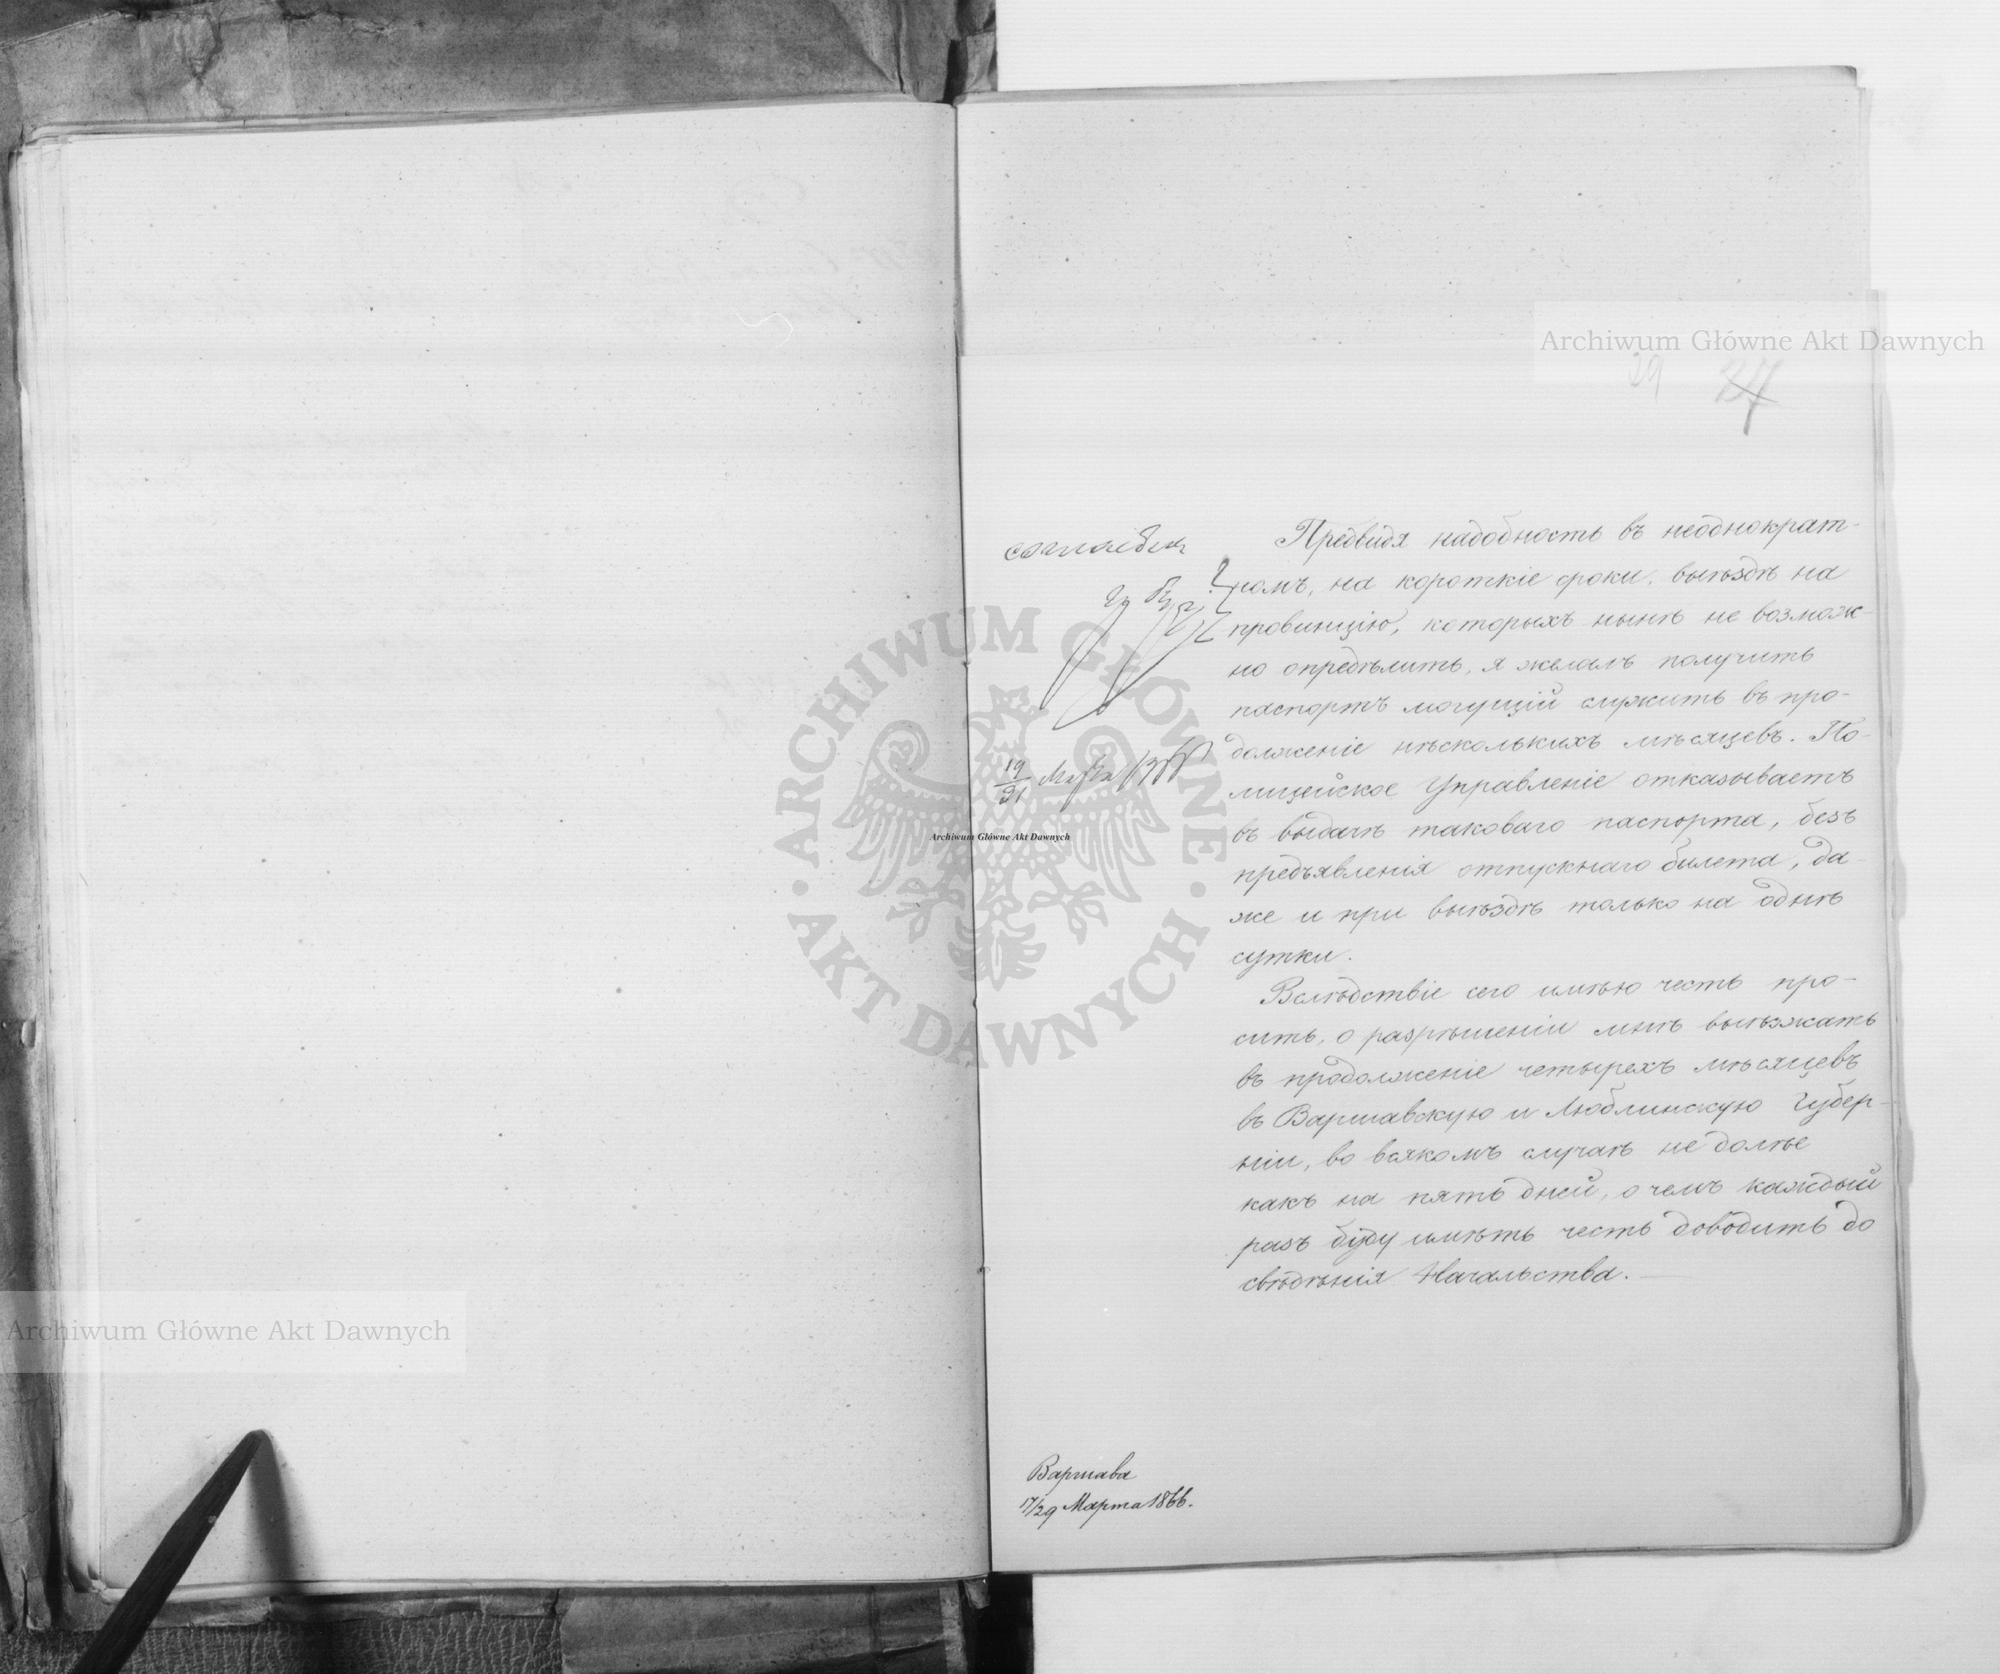 Archiwum Główne Akt Dawnych
29 27
Предвидя надобность въ неоднократ-
номъ, на короткіе сроки, выѣздѣ на
провинцію, которыхъ нынѣ не возмож-
но опредѣлить, я желалъ получить
паспортъ могущій служить въ про-
долженіе нѣсколькихъ мѣсяцевъ. По-
лицейское Управленіе отказываетъ
въ выдачѣ таковаго паспорта, безъ
предъявленія отпускнаго билета, да-
же и при выѣздѣ только на однѣ
сутки.
Вслѣдствіе сего имѣю честь про-
сить, о разрѣшеніи мнѣ выѣзжать
въ продолженіе четырехъ мѣсяцевъ
въ Варшавскую и Люблинскую Губер-
ніи, во всякомъ случаѣ не долѣе
какъ на пять дней, о чемъ каждый
разъ буду имѣть честь доводить до
свѣдѣнія Начальства.
19/31 Марта 1866
Варшава
17/29 Марта 1866.
ARCHIWUM GŁÓWNE · AKT DAWNYCH ·
Archiwum Główne Akt Dawnych
Archiwum Główne Akt Dawnych